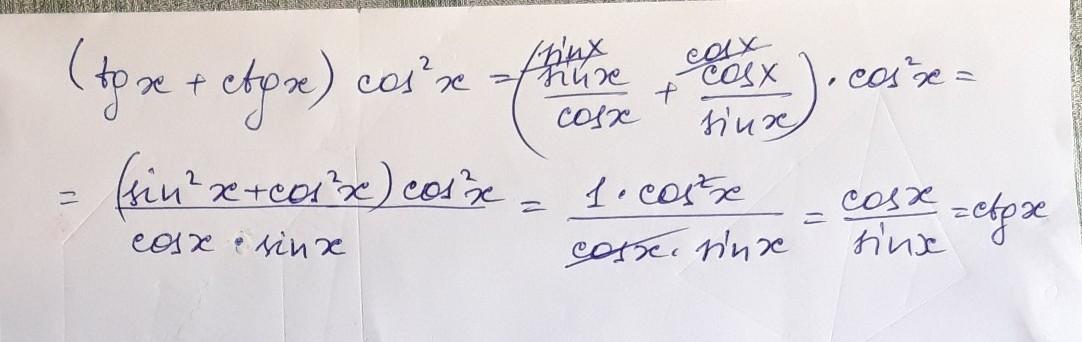 (tg x + ctg x) cos²x = (sin x / cos x + cos x / sin x) · cos²x =
= (sin²x + cos²x) cos²x / cos x · sin x = 1 · cos²x / cos x · sin x = cos x / sin x = ctg x